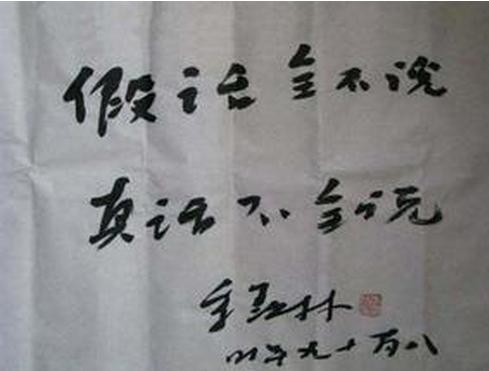 假话全不说
真话不全说
季羡林
时年九十有八